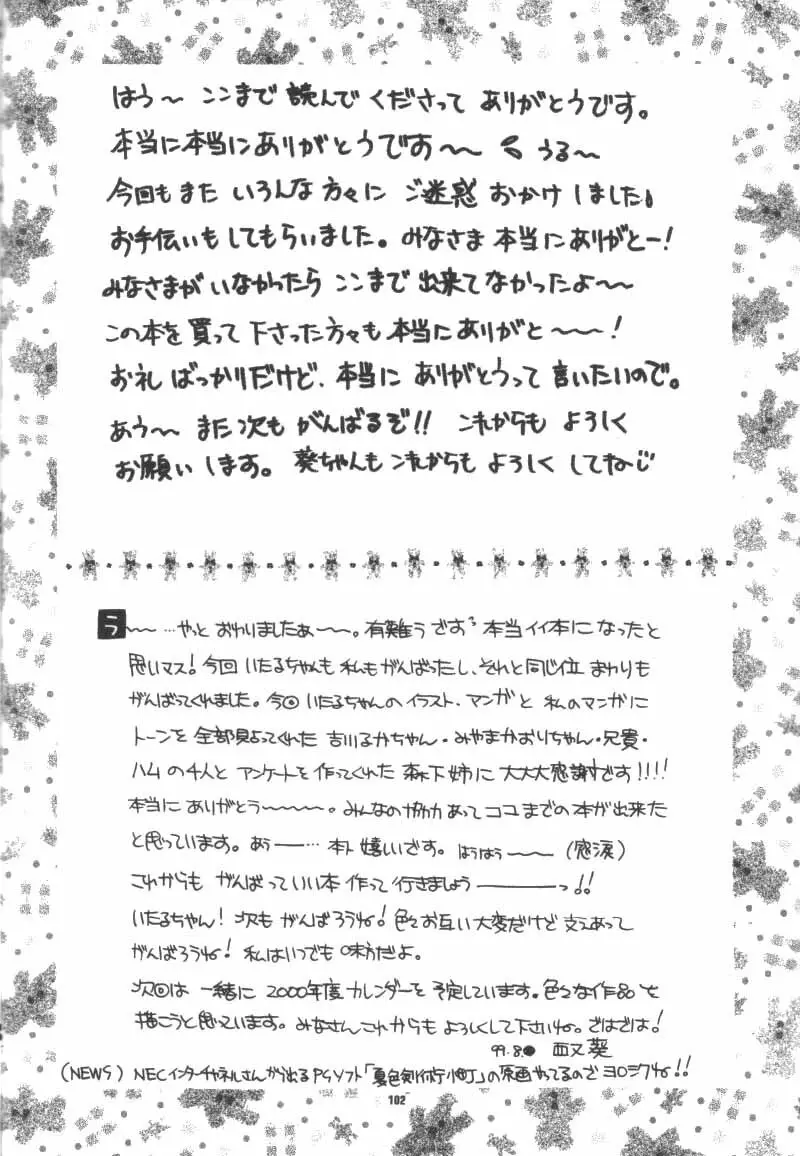 はう〜 ここまで 読んで くださって ありがとうです。
本当に本当にありがとうですお〜〜 うる〜
今回もまた いろんな 方々に ご迷惑 おかけ しました。
お手伝いも してもらいました。みなさま 本当にありがとー!
みなさまが いなかったら ここまで 出来てなかったよ〜〜
この本を 買って 下さった方々も 本当にありがと〜〜!
お礼 ばっかりだけど、本当に ありがとうって 言いたいので。
あう〜 また 次も がんばるぞ!! これからも よろしく
お願い します。葵ちゃんも これからも よろしく してね
う〜〜…やっと おわりましたぁ〜〜。有難う ざます 本当イイ本に なったと
思いマス! 今回 いたるちゃんも 私も がんばったし、それと同じ位 まわりも
がんばってくれました。今回 いたるちゃんの イラスト、マンガと 私のマンガに
トーンを 全部貼ってくれた 吉川るかちゃん・みやまかおりちゃん・兄貴・
ハム の4人と アンケートを 作ってくれた 森下姉に 大大大感謝です!!!!
本当に ありがとう〜〜〜〜。みんなの協力 あって ココまでの 本が 出来た
と思っています。あぅ――… 嬉しいです。はうはう〜〜 (感涙)
これからも がんばって いい本 作って 行きましょう―――っ!!
いたるちゃん! 次も がんばろうね! 色々お互い 大変だけど 支えあって
がんばろうね! 私はいつでも 味方だよ。
次回は 一緒に 2000年度 カレンダーを 予定しています。色々な作品を
描こうと思っています。みなさんこれからも よろしくして下さいね。ではでは!
99.8. 葵
(NEWS) NECインターチャネルさんから出る PSソフト「夏色剣術小町」の原画 やってるので ヨロシクね!!
102